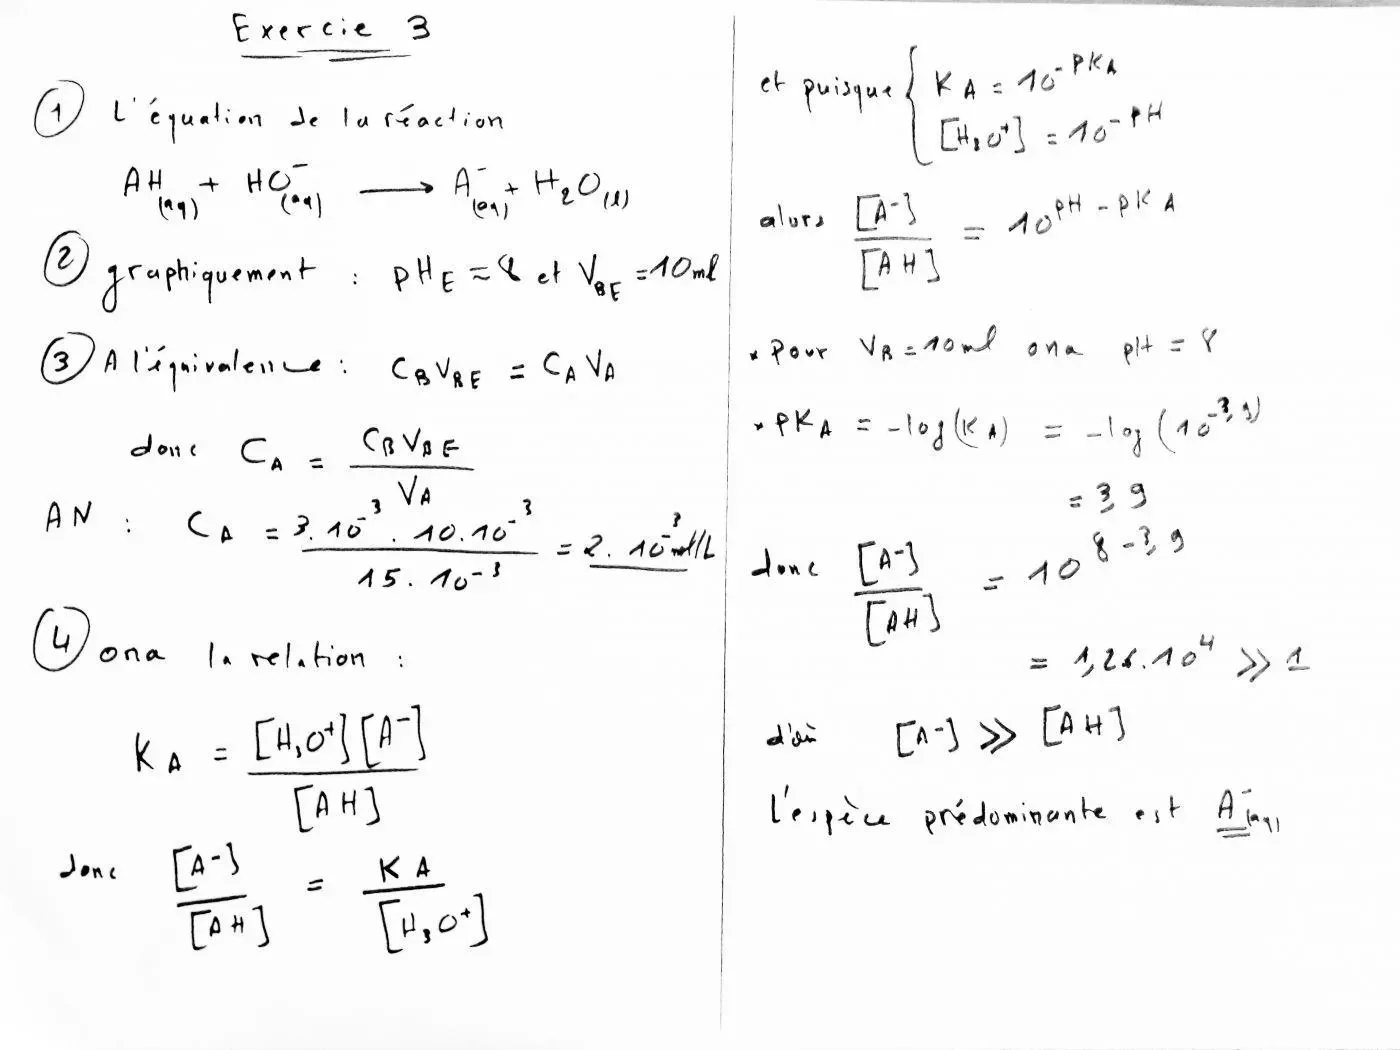 Exercie 3
① L'équation de la réaction
AH(aq) + HO⁻(aq) ⟶ A⁻(aq) + H₂O(l)
② graphiquement : pH_E ≈ 8 et V_BE = 10ml
③ A l'équivalence : C_B V_BE = C_A V_A
donc C_A = C_B V_BE / V_A
AN : C_A = 3.10⁻³ . 10.10⁻³ / 15.10⁻³ = 2.10⁻³ mol/L
④ ona la relation :
K_A = [H₃O⁺][A⁻] / [AH]
donc [A⁻] / [AH] = K_A / [H₃O⁺]
et puisque { K_A = 10^-PKA
[H₃O⁺] = 10^-PH
alors [A⁻] / [AH] = 10^(PH - PKA)
* Pour V_B = 10ml ona pH = 8
* PK_A = -log(K_A) = -log(10^-3,9)
= 3,9
donc [A⁻] / [AH] = 10^(8-3,9)
= 1,26.10⁴ >> 1
d'où [A⁻] >> [AH]
L'espèce prédominante est A⁻(aq)